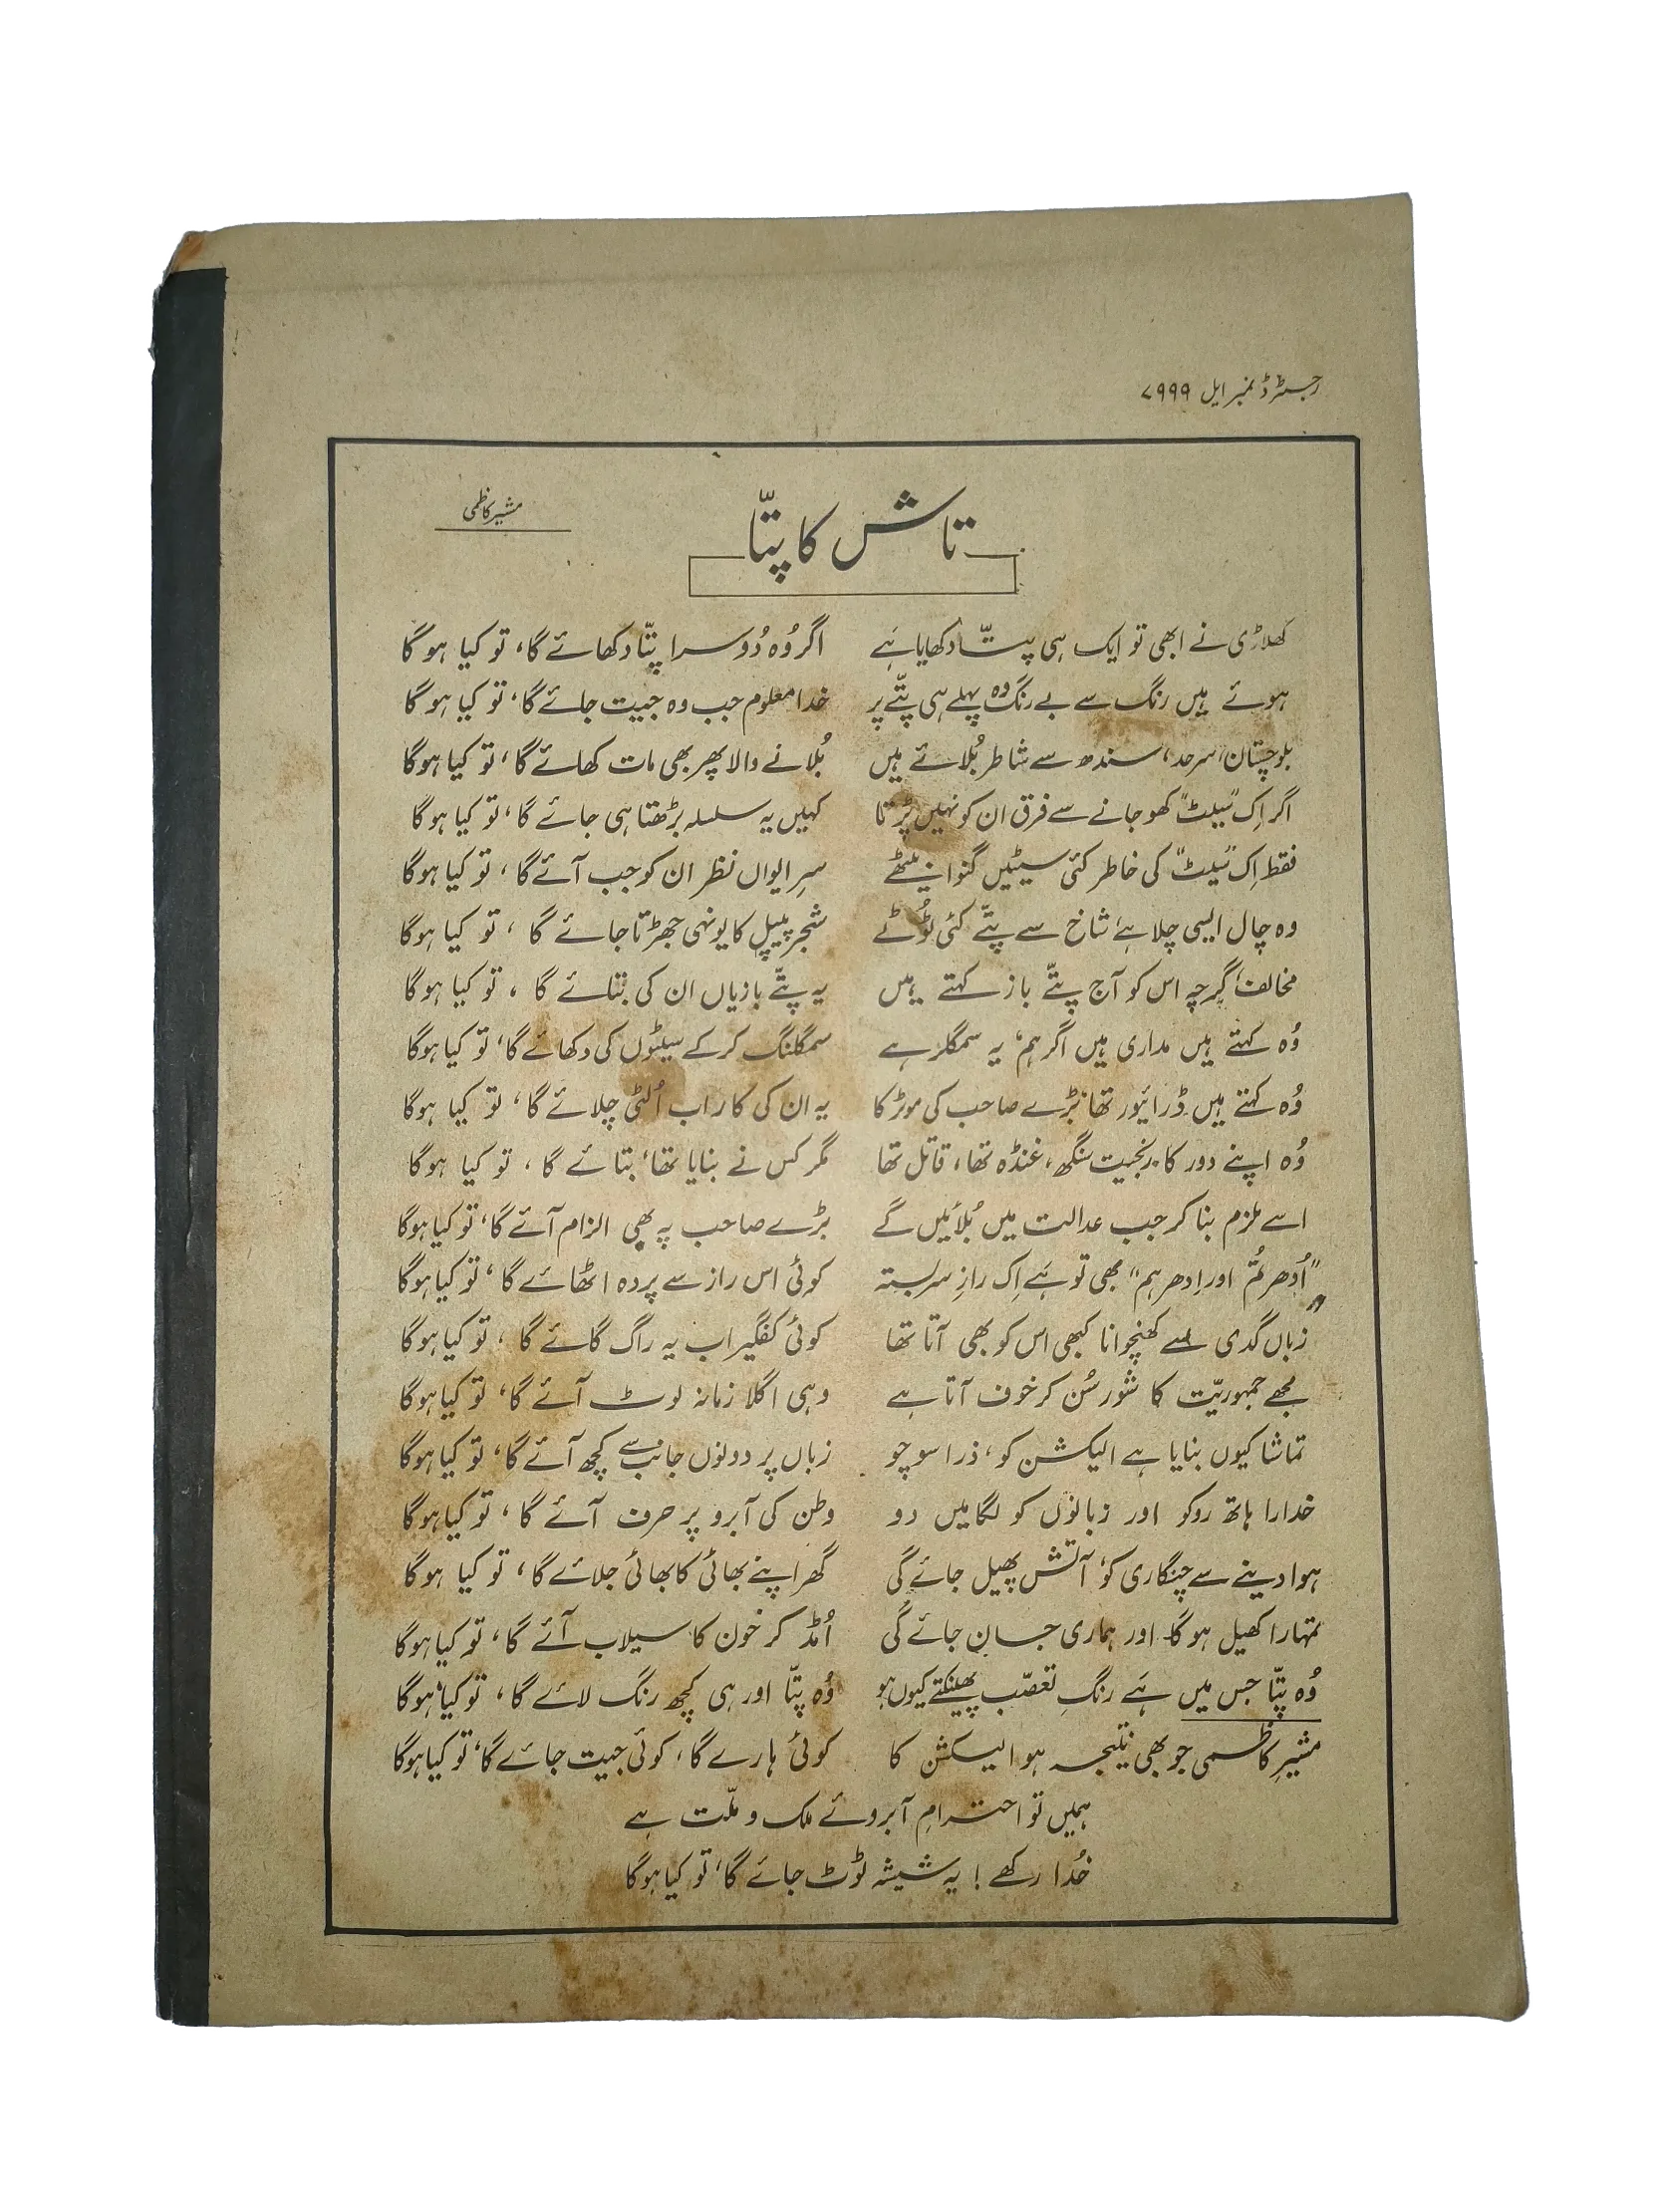 رجسٹرڈ نمبر ایل ۷۹۹۹
تاش کا پتّا
مشیر کاظمی
کھلاڑی نے ابھی تو ایک ہی پتّا دکھایا ہَے اگر وُہ دُوسرا پتّا دکھائے گا، تو کیا ہو گا
ہوئے ہیں رنگ سے بے رنگ وہ پہلے ہی پتّے پر خدا معلوم جب وہ جیت جائے گا، تو کیا ہو گا
بلوچستان، سرحد، سندھ سے شاطر بُلائے ہیں بُلانے والا پھر بھی مات کھائے گا، تو کیا ہوگا
اگر اِک "سیٹ" کھو جانے سے فرق ان کو نہیں پڑتا کہیں یہ سلسلہ بڑھتا ہی جائے گا، تو کیا ہو گا
فقط اِک "سیٹ" کی خاطر کئی سیٹیں گنوا بیٹھے سرِ ایواں نظر ان کو جب آئے گا، تو کیا ہوگا
وہ چال ایسی چلا ہے شاخ سے پتّے کئی ٹوُٹے شجر پیپل کا یونہی جھڑتا جائے گا، تو کیا ہوگا
مخالف گرچہ اس کو آج پتّے باز کہتے ہیں یہ پتّے بازیاں ان کی بتائے گا، تو کیا ہوگا
وُہ کہتے ہیں مداری ہیں اگر ہم، یہ سمگلر ہے سمگلنگ کر کے سیٹوں کی دکھائے گا، تو کیا ہوگا
وُہ کہتے ہیں ڈرائیور تھا بڑے صاحب کی موٹر کا یہ ان کی کار اب اُلٹی چلائے گا، تو کیا ہوگا
وُہ اپنے دور کا رنجیت سنگھ، غنڈہ تھا، قاتل تھا مگر کس نے بنایا تھا، بتائے گا، تو کیا ہوگا
اسے ملزم بنا کر جب عدالت میں بُلائیں گے بڑے صاحب پہ بھی الزام آئے گا، تو کیا ہوگا
"اُدھر تُم اور اِدھر ہم" بھی تو ہَے اِک رازِ سربستہ کوئی اس راز سے پردہ اٹھائے گا، تو کیا ہوگا
زباں گدی سے کھنچوانا کبھی اس کو بھی آتا تھا کوئی کفگیر اب یہ راگ گائے گا، تو کیا ہوگا
مجھے جمہوریّت کا شور سُن کر خوف آتا ہے وہی اگلا زمانہ لوٹ آئے گا، تو کیا ہوگا
تماشا کیوں بنایا ہے الیکشن کو، ذرا سوچو زباں پر دونوں جانب سے کچھ آئے گا، تو کیا ہوگا
خدارا ہاتھ روکو اور زبانوں کو لگامیں دو وطن کی آبرو پر حرف آئے گا، تو کیا ہوگا
ہوا دینے سے چنگاری کو، آتش پھیل جائے گی گھر اپنے بھائی کا بھائی جلائے گا، تو کیا ہوگا
تمہارا کھیل ہو گا اور ہماری جان جائے گی اُمڈ کر خون کا سیلاب آئے گا، تو کیا ہوگا
وُہ پتّا جس میں ہَے رنگِ تعصّب پھینکتے کیوں ہو وُہ پتّا اور ہی کچھ رنگ لائے گا، تو کیا ہوگا
مشیرِ کاظمی جو بھی نتیجہ ہو الیکشن کا کوئی ہارے گا، کوئی جیت جائے گا، تو کیا ہوگا
ہمیں تو احترامِ آبروئے ملک و ملّت ہے
خُدا رکھے! یہ شیشہ ٹوٹ جائے گا، تو کیا ہوگا